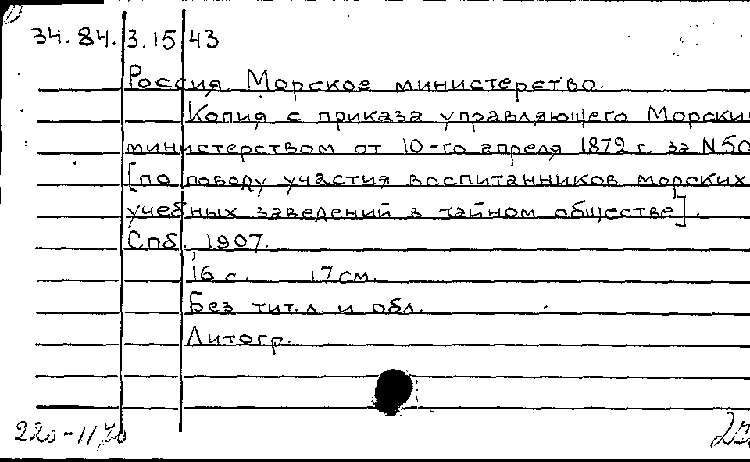 34.84.3.15 43
Россия. Морское министерство.
Копия с приказа управляющего Морским
министерством от 10-го апреля 1872 г. за N 50
[по поводу участия воспитанников морских
учебных заведений в тайном обществе].
Спб. 1907.
16 с. 17 см.
Без тит.л и обл.
Литогр.
220-1170